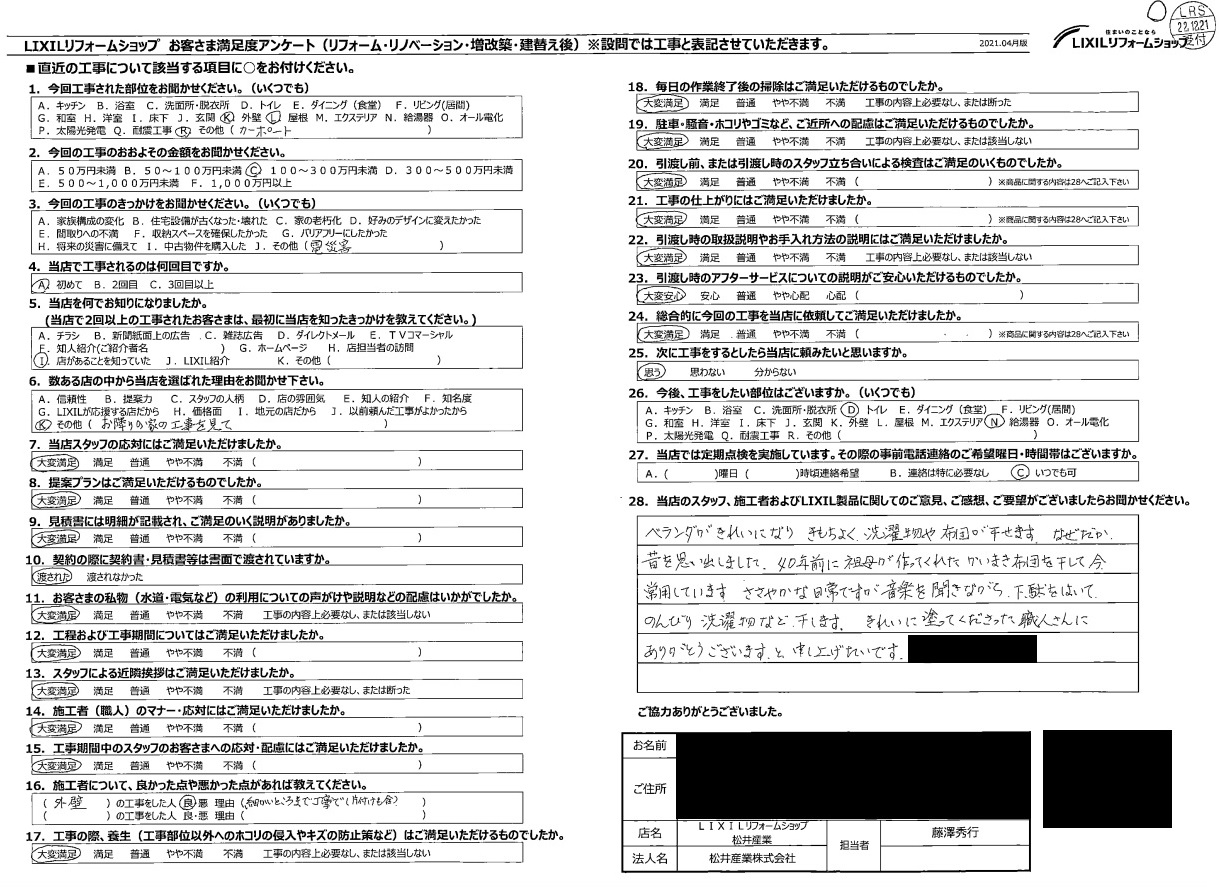 LIXILリフォームショップ お客さま満足度アンケート（リフォーム・リノベーション・増改築・建替え後）※設問では工事と表記させていただきます。
2021.04月版
住まいのことなら
LIXILリフォームショップ
LRS
22.12.21
受付
■直近の工事について該当する項目に○をお付けください。
1．今回工事された部位をお聞かせください。（いくつでも）
A．キッチン B．浴室 C．洗面所・脱衣所 D．トイレ E．ダイニング（食堂） F．リビング(居間)
G．和室 H．洋室 I．床下 J．玄関 K．外壁 L．屋根 M．エクステリア N．給湯器 O．オール電化
P．太陽光発電 Q．耐震工事 R．その他（ カーポート ）
2．今回の工事のおおよその金額をお聞かせください。
A．５０万円未満 B．５０～１００万円未満 C．１００～３００万円未満 D．３００～５００万円未満
E．５００～１,０００万円未満 F．１,０００万円以上
3．今回の工事のきっかけをお聞かせください。（いくつでも）
A．家族構成の変化 B．住宅設備が古くなった・壊れた C．家の老朽化 D．好みのデザインに変えたかった
E．間取りへの不満 F．収納スペースを確保したかった G．バリアフリーにしたかった
H．将来の災害に備えて I．中古物件を購入した J．その他（ 雹災害 ）
4．当店で工事されるのは何回目ですか。
A．初めて B．2回目 C．3回目以上
5．当店を何でお知りになりましたか。
(当店で2回以上の工事されたお客さまは、最初に当店を知ったきっかけを教えてください。)
A．チラシ B．新聞紙面上の広告 C．雑誌広告 D．ダイレクトメール E．ＴＶコマーシャル
F．知人紹介(ご紹介者名 ) G．ホームページ H．店担当者の訪問
I．店があることを知っていた J．LIXIL紹介 K．その他（ ）
6．数ある店の中から当店を選ばれた理由をお聞かせ下さい。
A．信頼性 B．提案力 C．スタッフの人柄 D．店の雰囲気 E．知人の紹介 F．知名度
G．LIXILが応援する店だから H．価格面 I．地元の店だから J．以前頼んだ工事がよかったから
K．その他（ お隣りの家の工事を見て ）
7．当店スタッフの応対にはご満足いただけましたか。
大変満足 満足 普通 やや不満 不満（ ）
8．提案プランはご満足いただけるものでしたか。
大変満足 満足 普通 やや不満 不満（ ）
9．見積書には明細が記載され、ご満足のいく説明がありましたか。
大変満足 満足 普通 やや不満 不満（ ）
10．契約の際に契約書・見積書等は書面で渡されていますか。
渡された 渡されなかった
11．お客さまの私物（水道・電気など）の利用についての声がけや説明などの配慮はいかがでしたか。
大変満足 満足 普通 やや不満 不満 工事の内容上必要なし、または該当しない
12．工程および工事期間についてはご満足いただけましたか。
大変満足 満足 普通 やや不満 不満（ ）
13．スタッフによる近隣挨拶はご満足いただけましたか。
大変満足 満足 普通 やや不満 不満 工事の内容上必要なし、または断った
14．施工者（職人）のマナー・応対にはご満足いただけましたか。
大変満足 満足 普通 やや不満 不満（ ）
15．工事期間中のスタッフのお客さまへの応対・配慮にはご満足いただけましたか。
大変満足 満足 普通 やや不満 不満（ ）
16．施工者について、良かった点や悪かった点があれば教えてください。
（ 外壁 ）の工事をした人 良・悪 理由（細かいところまで丁寧で（片付けも含） ）
（ ）の工事をした人 良・悪 理由（ ）
17．工事の際、養生（工事部位以外へのホコリの侵入やキズの防止策など）はご満足いただけるものでしたか。
大変満足 満足 普通 やや不満 不満 工事の内容上必要なし、または該当しない
18．毎日の作業終了後の掃除はご満足いただけるものでしたか。
大変満足 満足 普通 やや不満 不満 工事の内容上必要なし、または断った
19．駐車・騒音・ホコリやゴミなど、ご近所への配慮はご満足いただけるものでしたか。
大変満足 満足 普通 やや不満 不満 工事の内容上必要なし、または該当しない
20．引渡し前、または引渡し時のスタッフ立ち合いによる検査はご満足のいくものでしたか。
大変満足 満足 普通 やや不満 不満（ ）※商品に関する内容は28へご記入下さい
21．工事の仕上がりにはご満足いただけましたか。
大変満足 満足 普通 やや不満 不満（ ）※商品に関する内容は28へご記入下さい
22．引渡し時の取扱説明やお手入れ方法の説明にはご満足いただけましたか。
大変満足 満足 普通 やや不満 不満 工事の内容上必要なし、または該当しない
23．引渡し時のアフターサービスについての説明がご安心いただけるものでしたか。
大変安心 安心 普通 やや心配 心配（ ）
24．総合的に今回の工事を当店に依頼してご満足いただけましたか。
大変満足 満足 普通 やや不満 不満（ ）※商品に関する内容は28へご記入下さい
25．次に工事をするとしたら当店に頼みたいと思いますか。
思う 思わない 分からない
26．今後、工事をしたい部位はございますか。（いくつでも）
A．キッチン B．浴室 C．洗面所・脱衣所 D．トイレ E．ダイニング（食堂） F．リビング(居間)
G．和室 H．洋室 I．床下 J．玄関 K．外壁 L．屋根 M．エクステリア N．給湯器 O．オール電化
P．太陽光発電 Q．耐震工事 R．その他（ ）
27．当店では定期点検を実施しています。その際の事前電話連絡のご希望曜日・時間帯はございますか。
A．（ )曜日（ )時頃連絡希望 B．連絡は特に必要なし C．いつでも可
28．当店のスタッフ、施工者およびLIXIL製品に関してのご意見、ご感想、ご要望がございましたらお聞かせください。
ベランダがきれいになり きもちよく、洗濯物や布団が干せます。なぜだか、
昔を思い出しました。40年前に祖母が作ってくれたかいまき布団を干して今
常用しています ささやかな日常ですが音楽を聞きながら、下駄をはいて、
のんびり 洗濯物など、干します。 きれいに塗ってくださった職人さんに
ありがとうございます。と申し上げたいです。
ご協力ありがとうございました。
お名前
ご住所
店名
ＬＩＸＩＬリフォームショップ
松井産業
担当者
藤澤秀行
法人名
松井産業株式会社